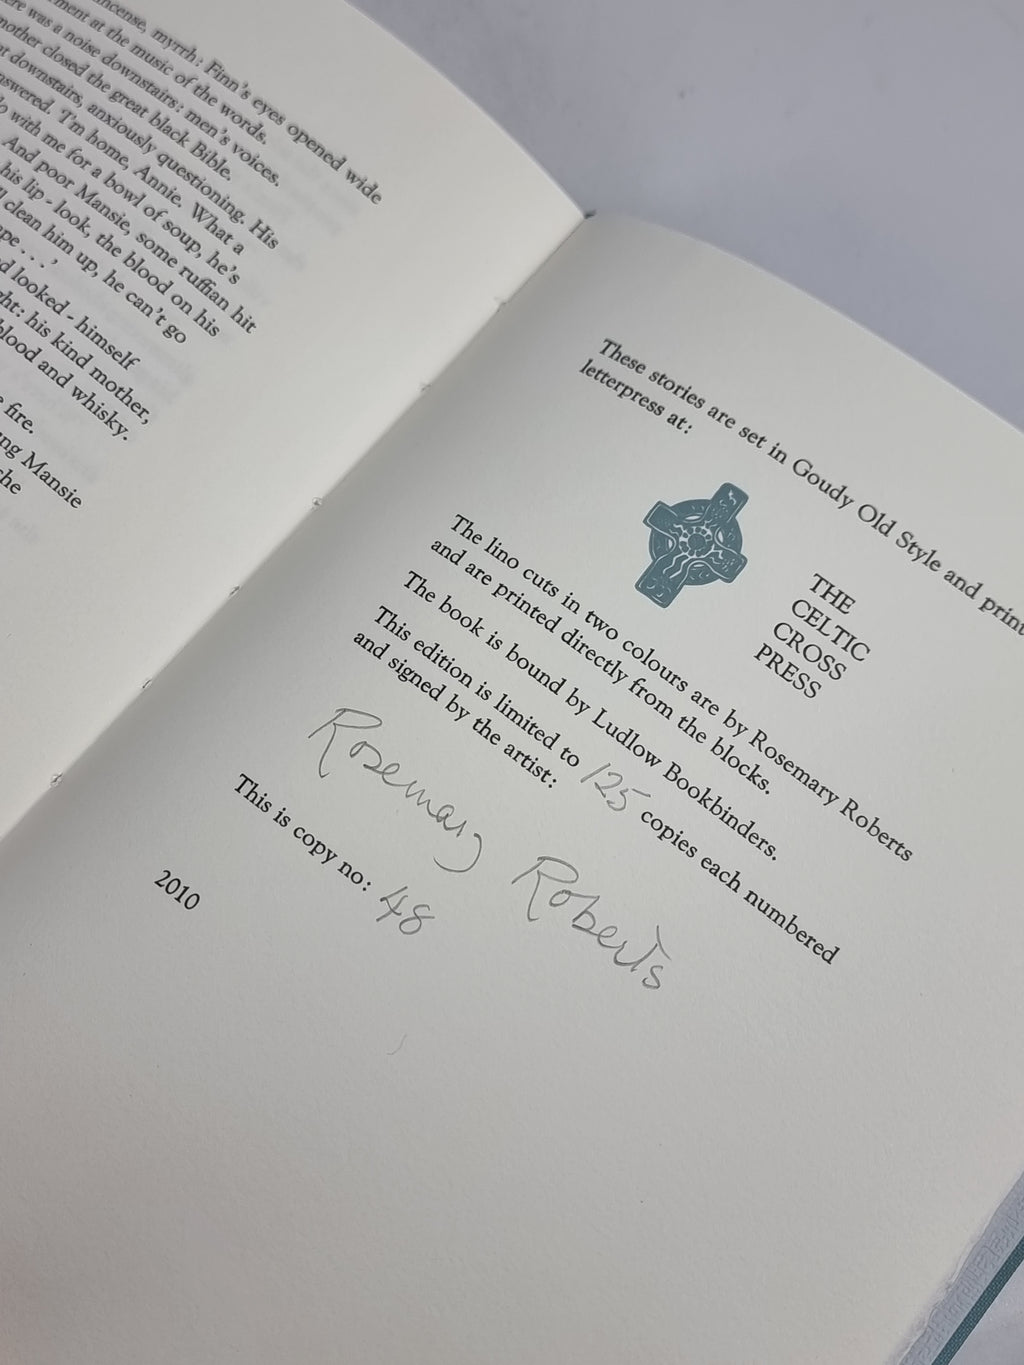 incense, myrrh: Finn's eyes opened wide
ment at the music of the words.
was a noise downstairs: men's voices.
mother closed the great black Bible.
downstairs, anxiously questioning. His
answered. 'I'm home, Annie. What a
with me for a bowl of soup, he's
And poor Mansie, some ruffian hit
his lip - look, the blood on his
clean him up, he can't go
. . .'
looked - himself
his kind mother,
blood and whisky.
fire.
Mansie
These stories are set in Goudy Old Style and print
letterpress at:
THE
CELTIC
CROSS
PRESS
The lino cuts in two colours are by Rosemary Roberts
and are printed directly from the blocks.
The book is bound by Ludlow Bookbinders.
This edition is limited to 125 copies each numbered
and signed by the artist:
Rosemary Roberts
This is copy no: 48
2010